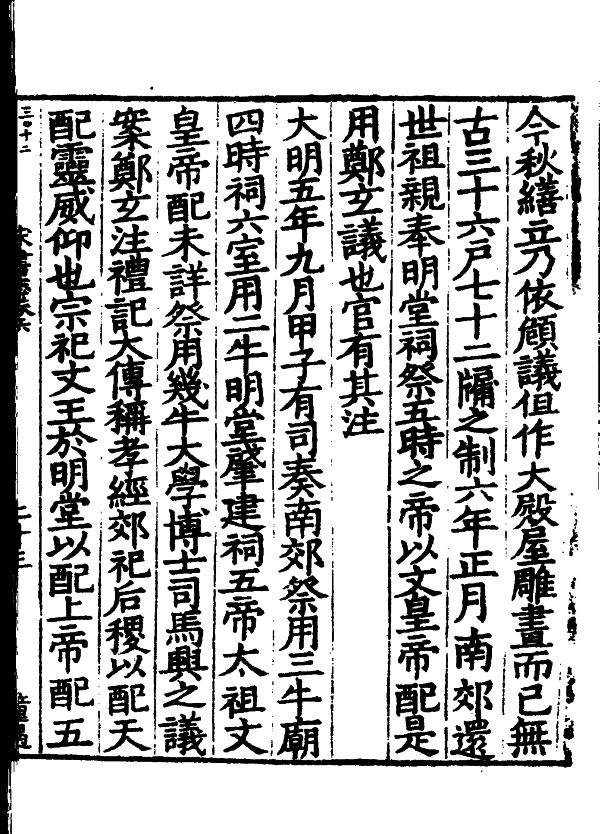 今秋繕立乃依頎議但作大殿屋雕畫而已無
古三十六戸七十二牖之制六年正月南郊還
世祖親奉明堂祠祭五時之帝以文皇帝配是
用鄭玄議也官有其注
大明五年九月甲子有司奏南郊祭用三牛廟
四時祠六室用二牛明堂肇建祠五帝太祖文
皇帝配未詳祭用幾牛太學博士司馬興之議
案鄭玄注禮記大傳稱孝經郊祀后稷以配天
配靈威仰也宗祀文王於明堂以配上帝配五